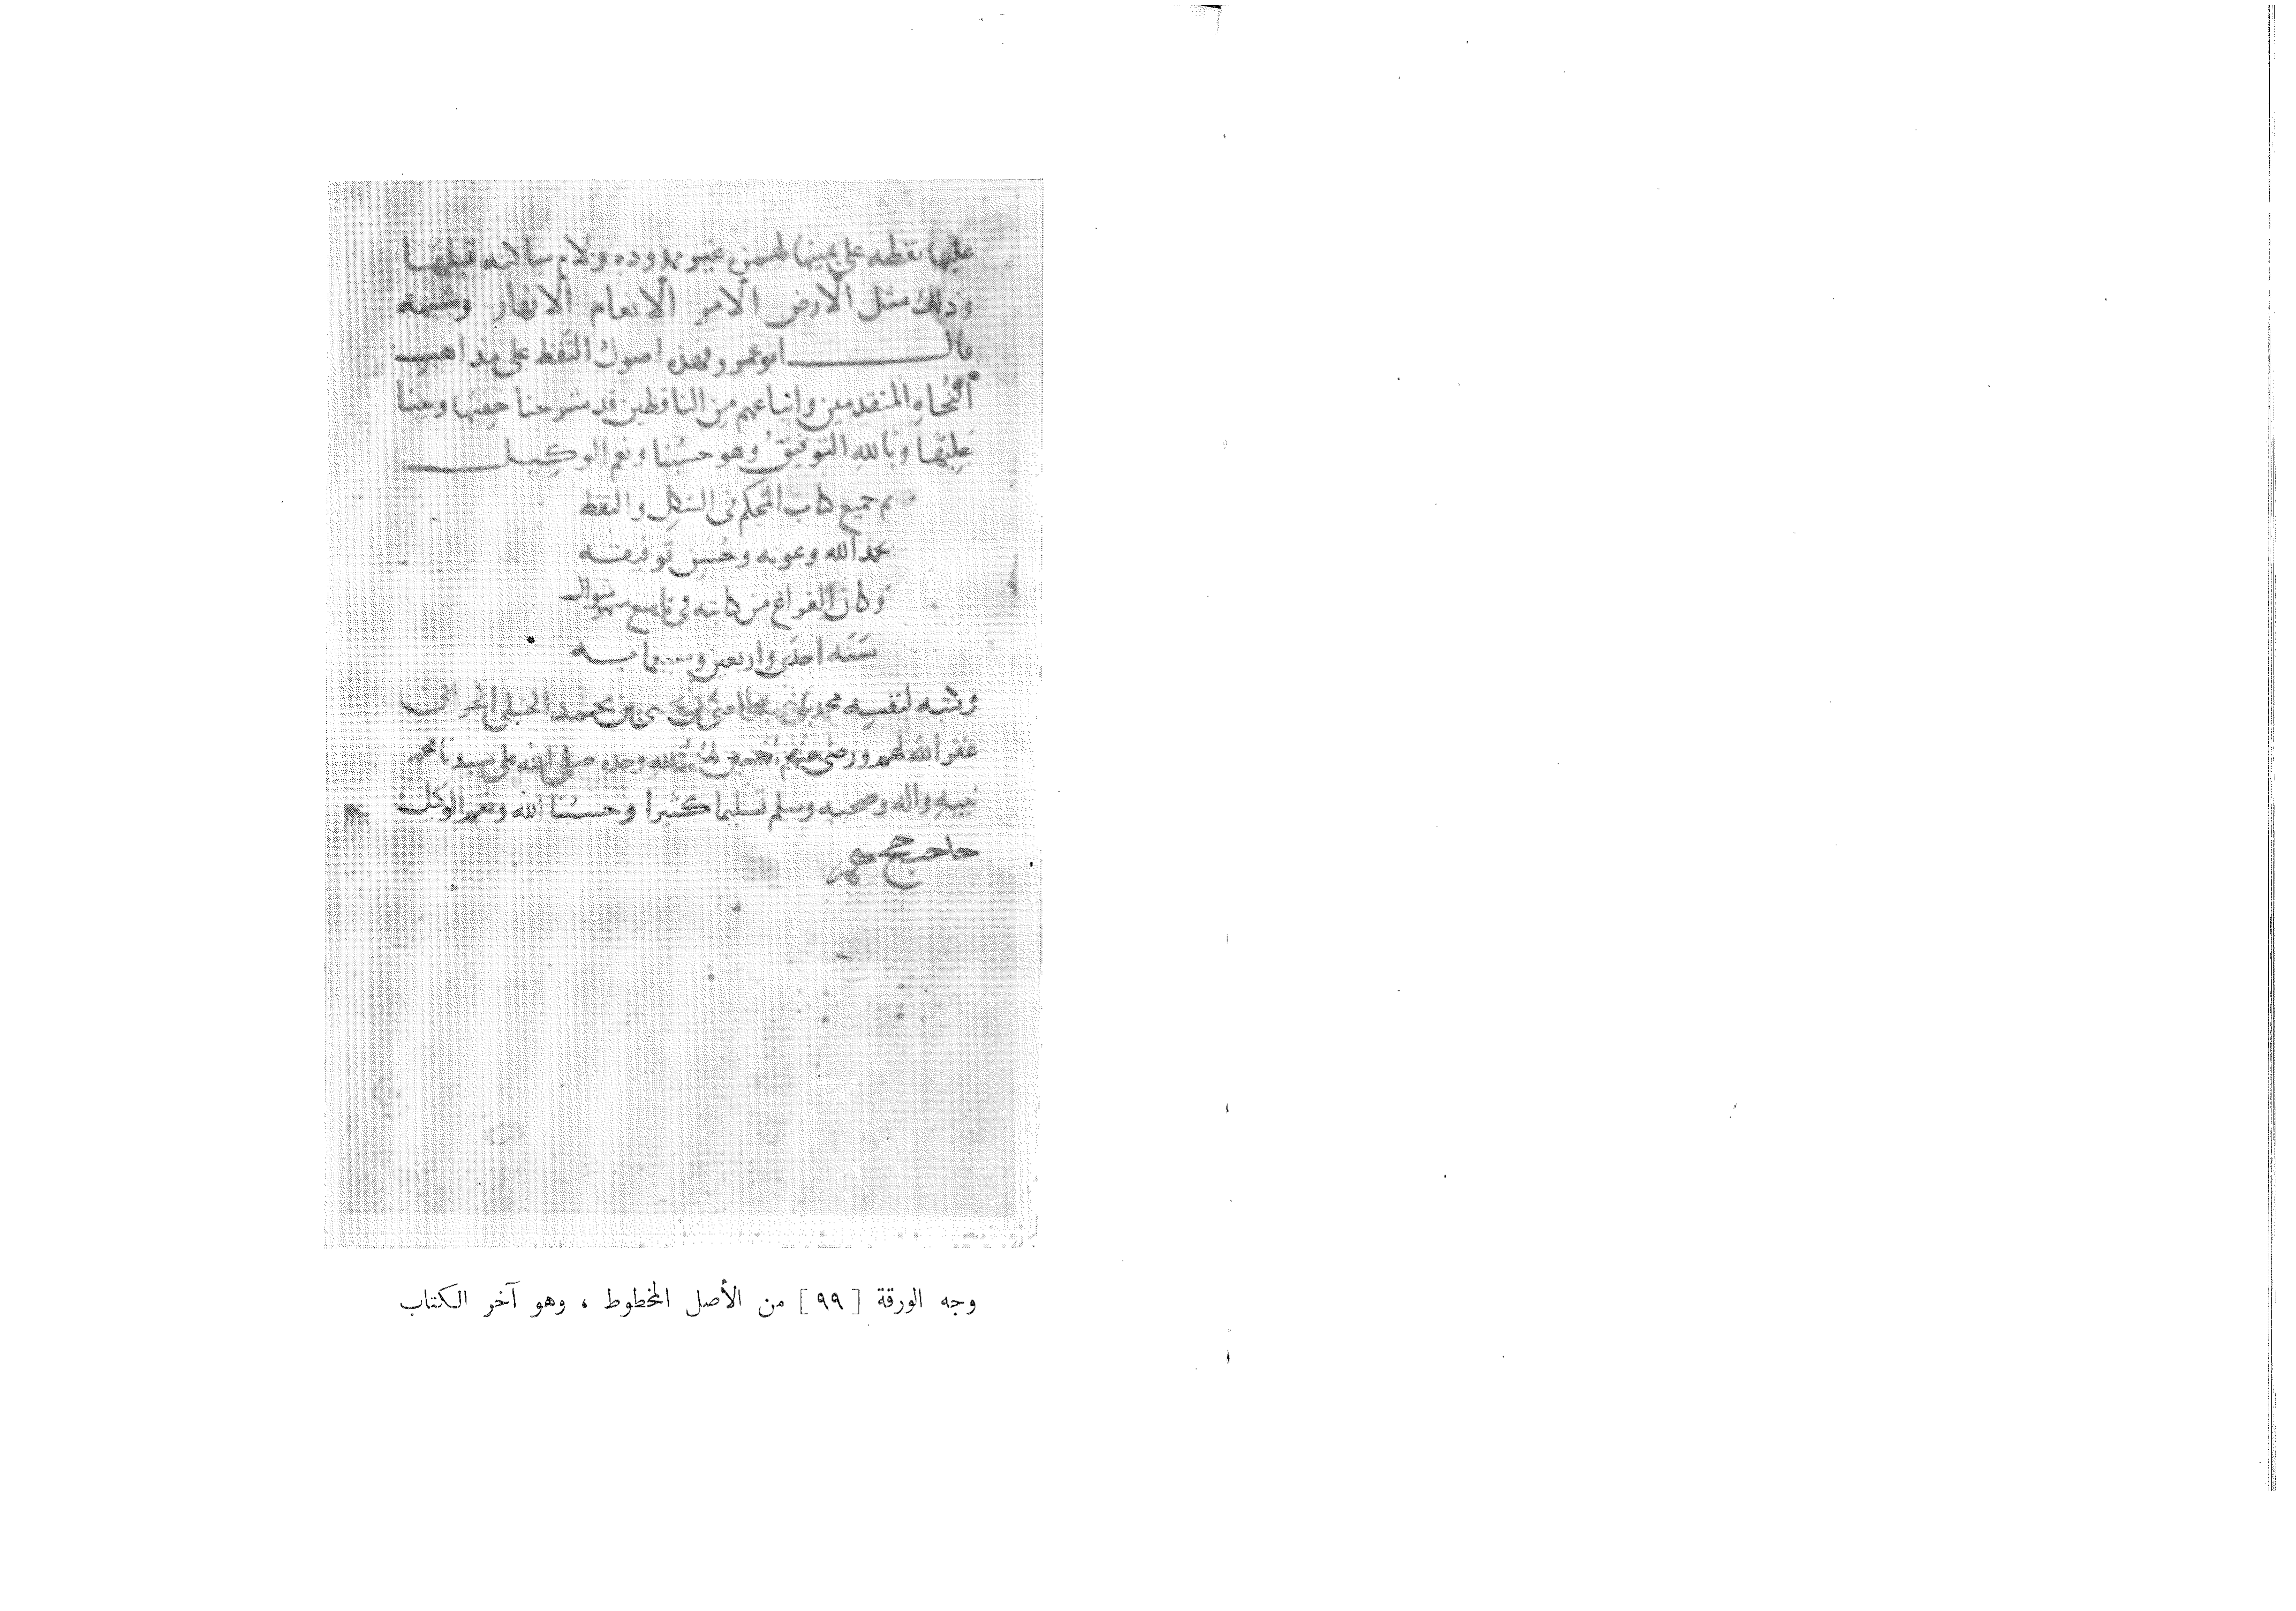 عليها نقطه على يمينها لهمزه غير ممدوده ولام ساكنه قبلها
وذلك مثل الارض الامر الانعام الانهار وشبهه
قال ابو عمرو فهذه اصول النقط على مذاهب
النحاه المتقدمين واتباعهم من الناقطين قد شرحنا حقيقتها وجئنا
وبالله التوفيق وهو حسبنا ونعم الوكيل
تم جميع كتاب المحكم في الشكل والنقط
بحمد الله وعونه وحسن توفيقه
وكان الفراغ من كتابته في تاسع شهر شوال
سنه احدى واربعين وسبعمايه
وكتبه لنفسه محمد بن بن محمد الحنبلي الحراني
غفر الله لهم ورضي عنهم اجمعين لله وحده صلى الله على سيدنا محمد
نبيه واله وصحبه وسلم تسليما كثيرا وحسبنا الله ونعم الوكيل
وجه الورقة [ ٩٩ ] من الأصل المخطوط ، وهو آخر الكتاب